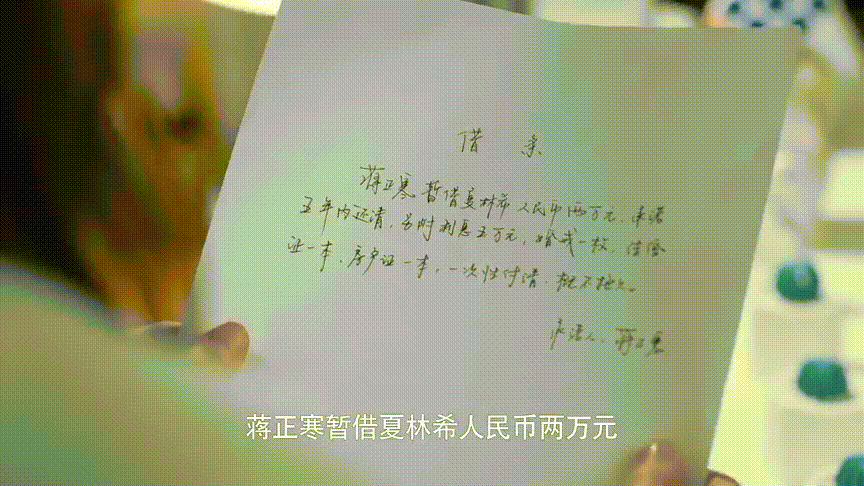 借条
蒋正寒暂借夏林希人民币两万元,承诺
五年内还清,另附利息五万元,婚戒一枚,结婚
证一本,房产证一本,一次性付清,概不拖欠。
承诺人:蒋正寒
蒋正寒暂借夏林希人民币两万元